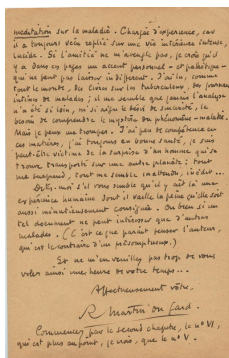 meditation sur la maladie. Chargée d'expérience, car
il a toujours vécu replié sur une vie intérieure intense,
lucide. Si l'amitié ne m'aveugle pas, je crois qu'il
y a dans ces pages un accent personnel – et pathétique –
qui ne peut pas laisser indifférent. J'ai lu, comme
tout le monde, des livres sur les tuberculeux, des journaux
intimes de malades; il me semble que jamais l'analyse
n'a été si loin, ni si aigu le souci de sincérité, le
besoin de comprendre le mystère du phénomène – malade.
Mais je peux me tromper. J'ai peu de compétence en
ces matières, j'ai toujours été en bonne santé, je suis
peut-être victime de la surprise d'un homme qui se
trouve transporté sur une autre planète: tout
me surprend, tout me semble inattendu, inédit...
Dites-moi s'il vous semble qu'il y ait là une
expérience humaine dont il vaille la peine qu'elle soit
aussi minutieusement consignée. Ou bien si un
tel document ne peut intéresser que d'autres
malades. (C'est ce que paraît penser l'auteur,
qui est le contraire d'un présomptueux.)
Et ne m'en veuillez pas trop de vous
voler ainsi une heure de votre temps...
Affectueusement vôtre.
R. Martin du Gard.
Commencez par le second chapitre, le n° VI,
qui est plus au point, je crois, que le n° V.